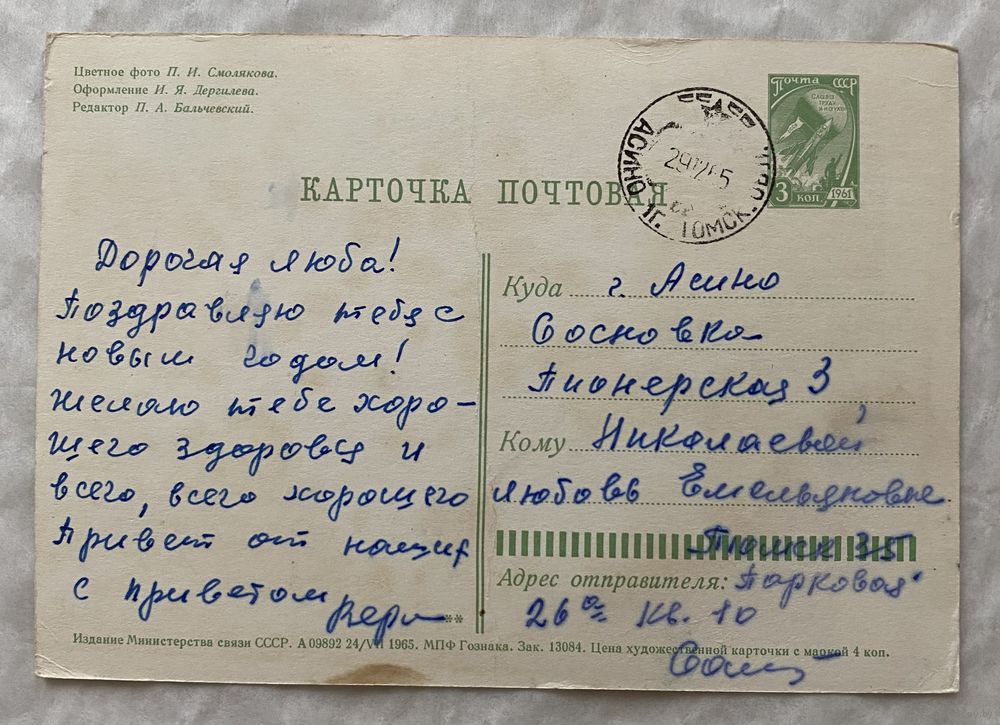 Цветное фото П. И. Смолякова.
Оформление И. Я. Дергилева.
Редактор П. А. Бальчевский.
Почта СССР
СЛАВА ТРУДУ И НАУКЕ
3 коп. 1961
АСИНО 1г. ТОМСК. ОБ
29 12 65
КАРТОЧКА ПОЧТОВАЯ
Дорогая Люба!
Поздравляю тебя с
новым годом!
Желаю тебе хоро-
шего здоровья и
всего, всего хорошего
Привет от наших
с приветом Вера
**
Куда г. Асино
Сосновка
Пионерская 3
Кому Николаевой
Любовь Емельяновне
Томск 35
Адрес отправителя: Парковая
26а кв. 10
Издание Министерства связи СССР. А 09892 24/VII 1965. МПФ Гознака. Зак. 13084. Цена художественной карточки с маркой 4 коп.